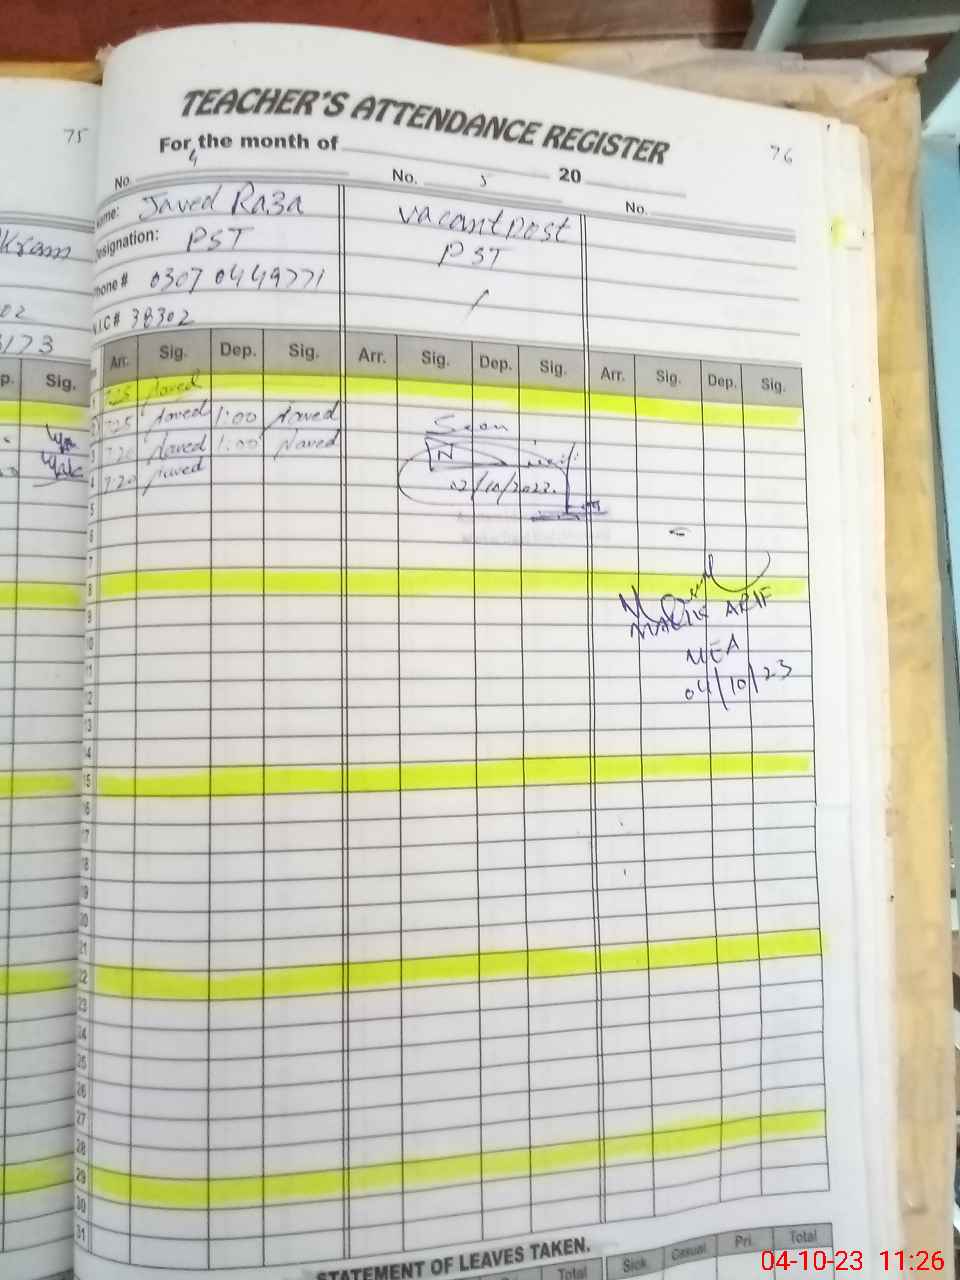 75
TEACHER'S ATTENDANCE REGISTER
76
For the month of
4
No. No. 5 20 No.
Name: Javed Raza vacant post
Designation: PST PST
Phone # 0307 0449771
N.I.C # 38302
Kram
02
3173
p. Sig.
Arr. Sig. Dep. Sig. Arr. Sig. Dep. Sig. Arr. Sig. Dep. Sig.
1 7:25 Javed
2 7:25 Javed 1:00 Javed
Seen
3 7:20 Javed 1:00 Javed
4 7:20 Javed
02/10/2023.
5
6
7
8
9
MALIK ARIF
10
11
MEA
12
04/10/23
13
14
15
16
17
18
19
20
21
22
23
24
25
26
27
28
29
30
31
STATEMENT OF LEAVES TAKEN.
Total Sick Casual Pri. Total
04-10-23 11:26